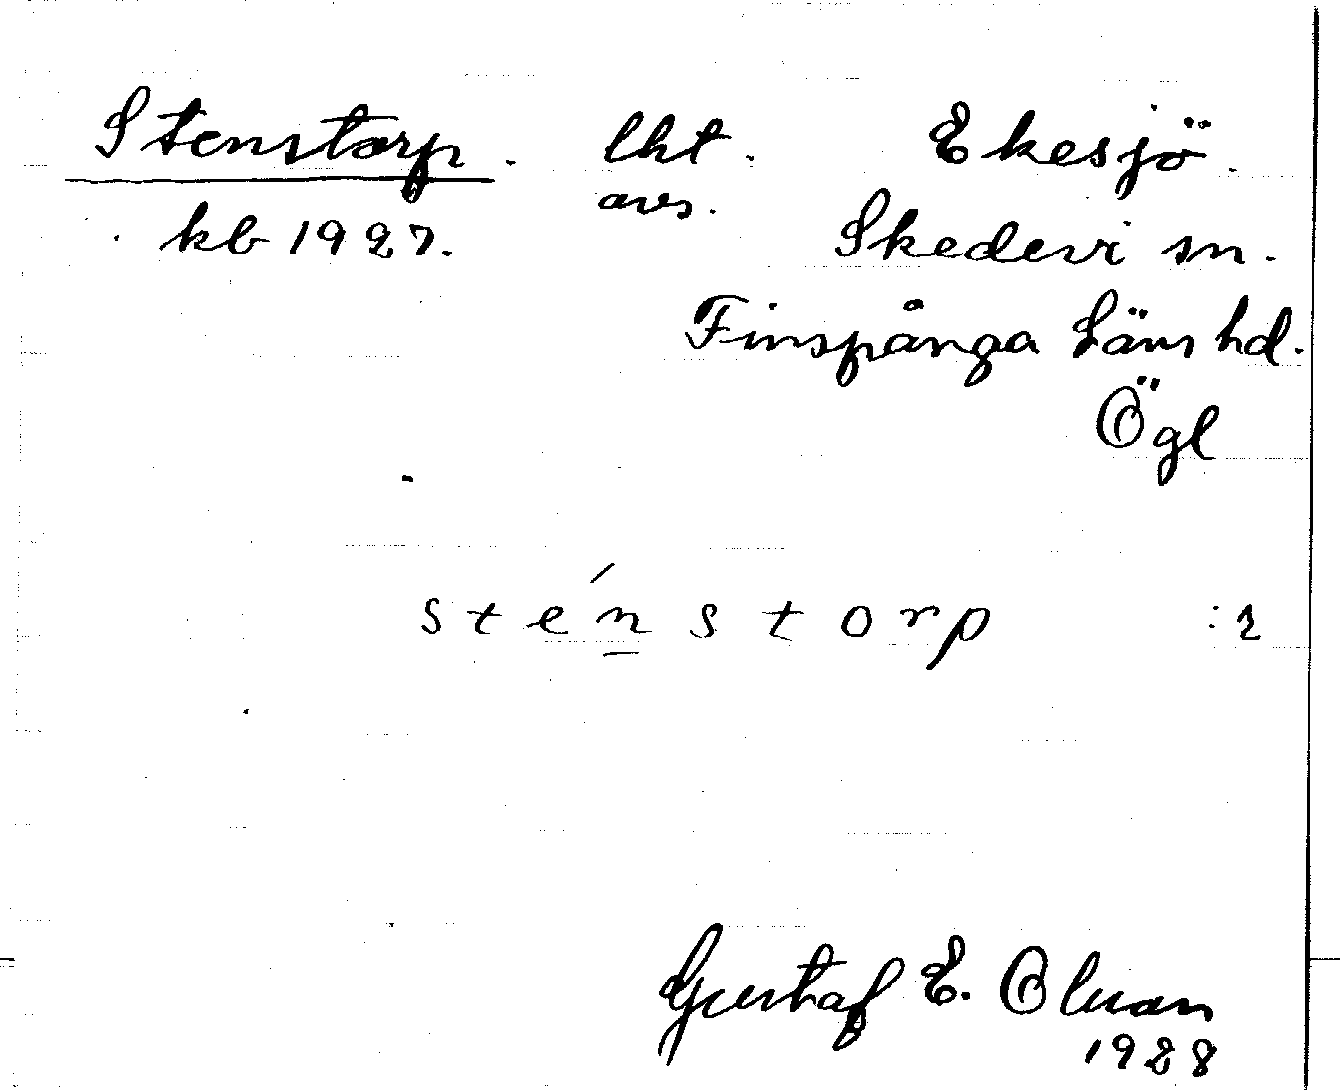 Stenstorp. lht. Ekesjö.
avs.
kb 1927. Skedevi sn.
Finspånga Läns hd.
Ögl
sténstorp :2
Gustaf E. Olsson
1928